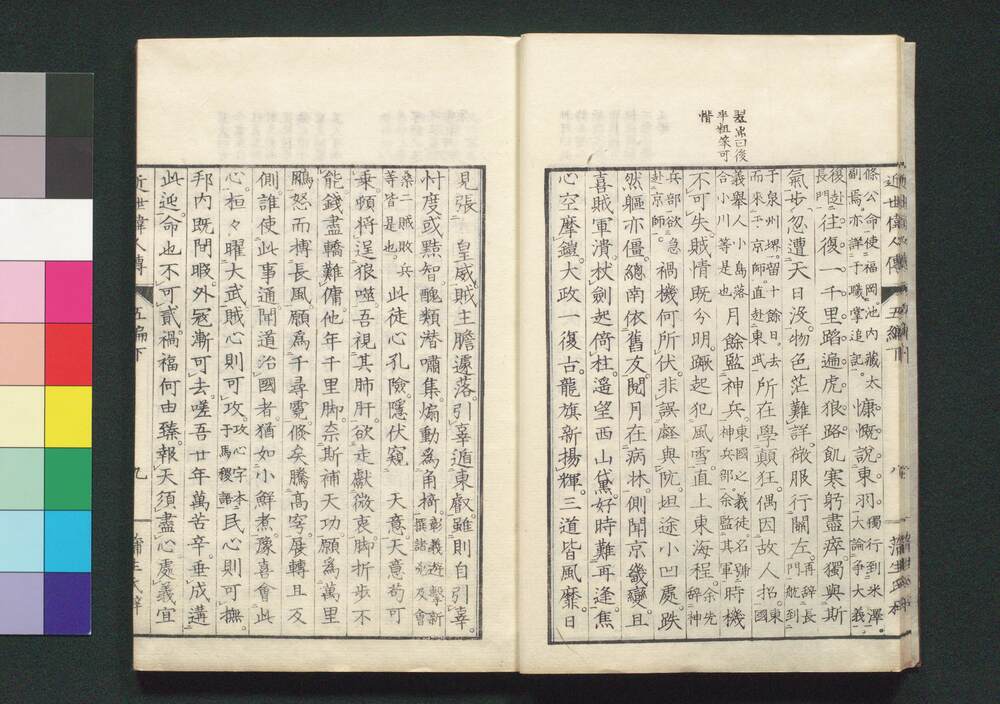 近世偉人傳
五編下
八
蒲生氏梓
翠嵐曰後
半粗策可
惜
條公命使福岡池内藏太
副焉亦詳于職掌追記慷慨說東羽獨行到米澤
大論爭大義
後赴
長門往復一千里蹈遍虎狼路飢寒躬盡瘁獨與斯
氣步忽遭天日沒物色茫難詳微服行關左再辭長
門航到
于泉州堺留十餘日去
而來于京師直赴東武所在學顛狂偶因故人招東
國
義舉人小島落
合小川等是也月餘監神兵東國之義徒名號
神兵部余監其軍時機
不可失賊情既分明蹶起犯風雪直上東海程余先
辭神
兵部欲急
赴京師禍機何所伏非誤疑與阬坦途小凹處跌
然軀亦僵總南依舊友閱月在病牀側聞京畿變且
喜賊軍潰杖劍起倚柱遙望西山黛好時難再逢焦
心空摩鑓大政一復古龍旗新揚輝三道皆風靡日
見張　皇威賊主膽遽落引辜遁東叡雖則自引辜
忖度或黠知醜類潜嘯集煽動爲角掎彰義遊擊新
撰諸兇及會
桑二賊敗兵
等皆是也此徒心孔險隱伏窺　天意天意苟可
乘頓將逞狼噬吾視其肺肝欲走獻微衷脚折步不
能錢盡轎難傭他年千里脚奈斯補天功願爲萬里
鵰怒而搏長風願爲千尋霓倏矣騰高穹展轉且反
側誰使此事通聞道治國者猶如小鮮煮豫喜會此
心桓々曜大武賊心則可攻攻心字本
于馬稷語民心則可撫
邦内既閒暇外寇漸可去嗟吾廿年萬苦辛垂成遘
此迍命也不可貳禍福何由臻報天須盡心處義宜
近世偉人傳
五編下
九
蒲生氏梓